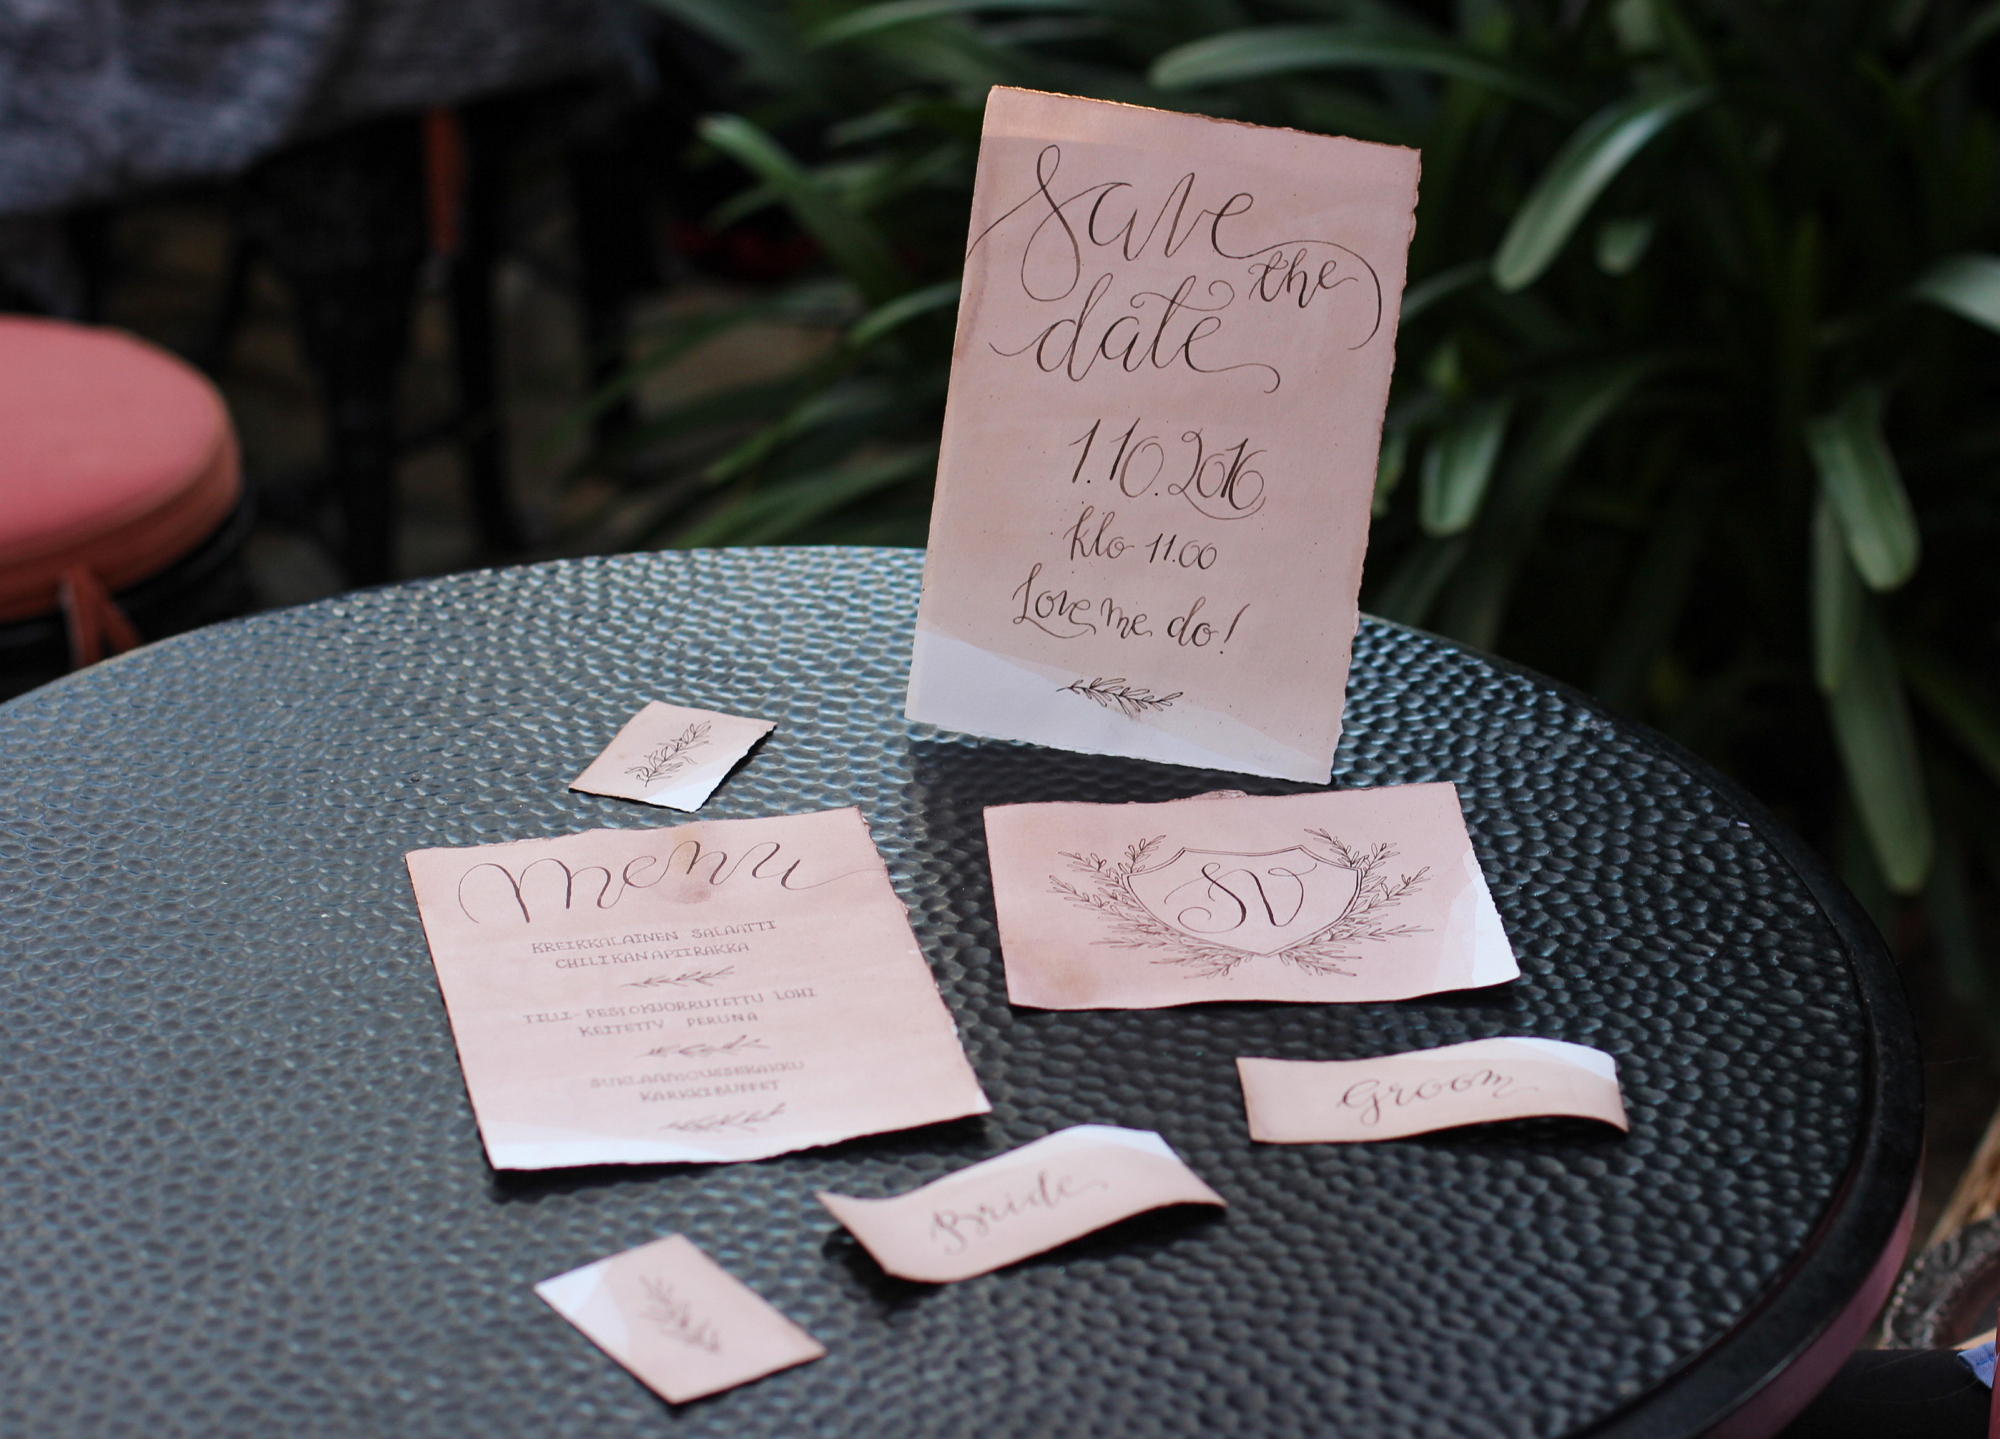 Save
the
date
1.10.2016
klo 11.00
Love me do!
Menu
KREIKKALAINEN SALAATTI
CHILIKANAPIIRAKKA
TILLI-PESTOKUORRUTETTU LOHI
KEITETTY PERUNA
SUKLAAMOUSSEKAKKU
KARKKIBUFFET
SV
Groom
Bride